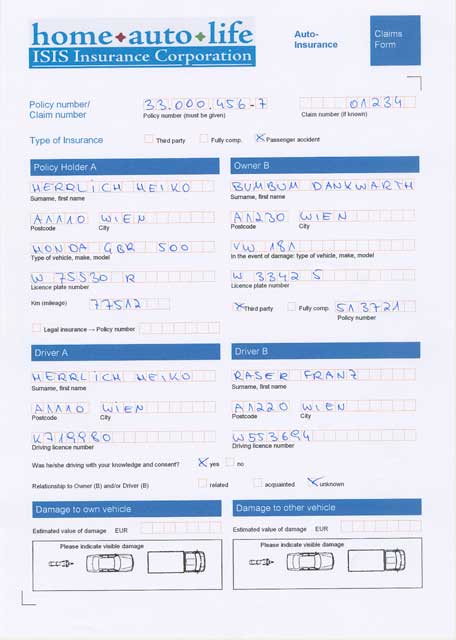 home+auto+life
ISIS Insurance Corporation
Auto-
Insurance
Claims
Form
Policy number/
Claim number
33.000.456-7
Policy number (must be given)
01234
Claim number (if known)
Type of Insurance
Third party
Fully comp.
Passenger accident
Policy Holder A
Owner B
HERRLICH HEIKO
BUMBUM DANKWARTH
Surname, first name
Surname, first name
A1110 WIEN
A1230 WIEN
Postcode City
Postcode City
HONDA GBR 500
VW 181
Type of vehicle, make, model
In the event of damage: type of vehicle, make, model
W 75530 R
W 3342 S
Licence plate number
Licence plate number
Km (mileage) 77512
Third party Fully comp. 513721
Policy number
Legal insurance → Policy number
Driver A
Driver B
HERRLICH HEIKO
RASER FRANZ
Surname, first name
Surname, first name
A1110 WIEN
A1220 WIEN
Postcode City
Postcode City
K719980
W553694
Driving licence number
Driving licence number
Was he/she driving with your knowledge and consent? yes no
Relationship to Owner (B) and/or Driver (B) related acquainted unknown
Damage to own vehicle
Damage to other vehicle
Estimated value of damage EUR
Estimated value of damage EUR
Please indicate visible damage
Please indicate visible damage